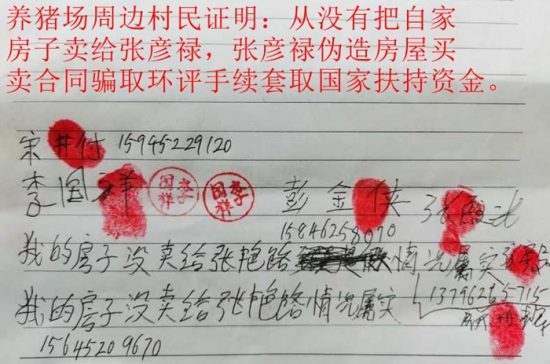 养猪场周边村民证明：从没有把自家
房子卖给张彦禄，张彦禄伪造房屋买
卖合同骗取环评手续套取国家扶持资金。
宋井付 15945229120
李国祥 李国祥 李国祥 彭金侠
15846258070
我的房子没卖给张艳路 情况属实
我的房子没卖给张艳路情况属实
13796265715
15645209670